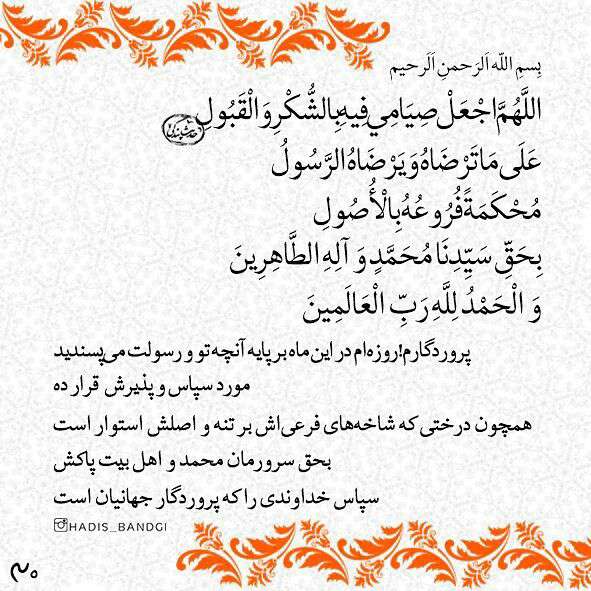 بِسمِ اللّه اَلرَحمنِ اَلَرحیم
اللَّهُمَّ اجْعَلْ صِيَامِي فِيهِ بِالشُّكْرِ وَ الْقَبُولِ
عَلَى مَا تَرْضَاهُ وَ يَرْضَاهُ الرَّسُولُ
مُحْكَمَةً فُرُوعُهُ بِالْأُصُولِ
بِحَقِّ سَيِّدِنَا مُحَمَّدٍ وَ آلِهِ الطَّاهِرِينَ
وَ الْحَمْدُ لِلَّهِ رَبِّ الْعَالَمِينَ
پروردگارم!روزه‌ام در این ماه بر پایه آنچه تو و رسولت می‌پسندید
مورد سپاس و پذیرش قرار ده
همچون درختی که شاخه‌های فرعی‌اش بر تنه و اصلش استوار است
بحق سرورمان محمد و اهل بیت پاکش
سپاس خداوندی را که پروردگار جهانیان است
HADIS_BANDGI
۳۰